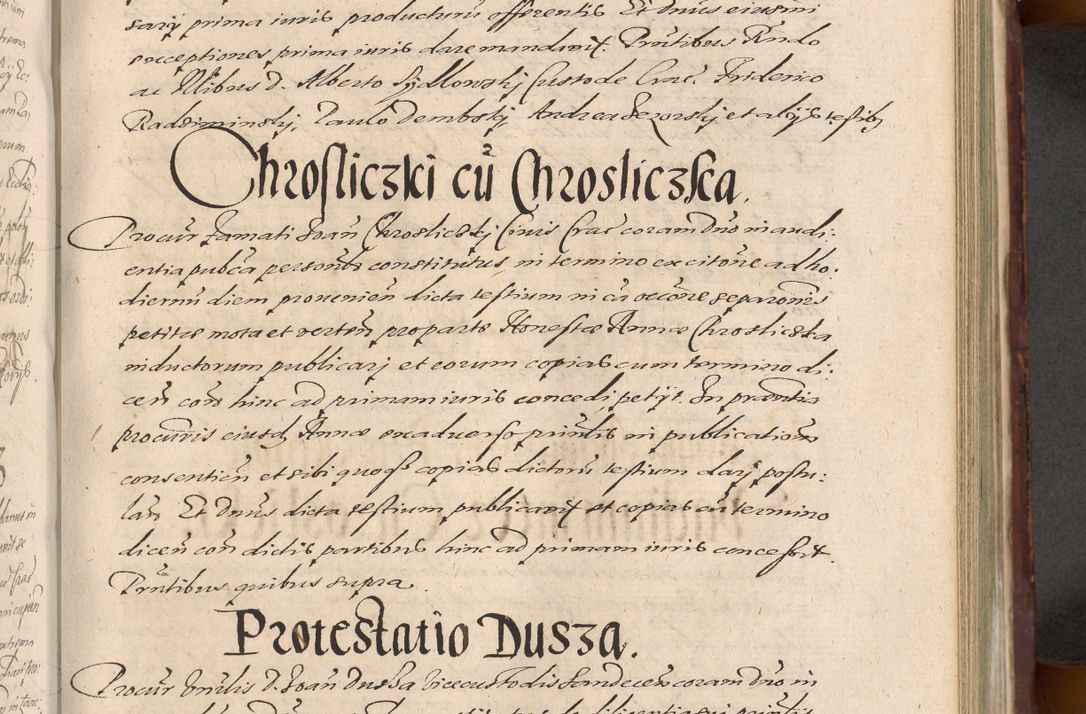 sarÿ prima iuris producturũ offerentis Et Dnus eiusmi
exceptiones prima iuris dare mandavit. Pñtibus Rndo
ac Nlibus D. Alberto Sÿdlowskÿ Custode Crac. Friderico
Radziminskÿ, Paulo Dembskÿ, Andrea et alÿs testib
Chrosliczki cũ Chrosliczka.
Procur Famati Joañ Chrosliczkÿ Civis Crac coram Dño in audi:
entia pubca personlr constitutus, in termino ex citoñe ad ho:
diernũ diem provenieñ dicta testium in cã occoñe separoñis
petitae mota et verteñ pro parte Honestae Annae Chrosliczka
inductorum publicarj et eorum copias cum termino di:
ceñ coñ hinc ad primam iuris concedi, petÿt. In prãentia
procuris eiusd Annae ex adverso priñlis in publicationem
consentieñ et sibi quoqs copias dictorũ testium darj postu:
lañ Et Dnus dicta testium publicavit et copias cũ termino
diceñ coñ dictis partibus hinc ad primam iuris concessit.
Pñtibus quibus supra.
Protestatio Dusza.
Procur Vnlis D. Joañ Dussa Vicecustodis Sandeceñ coram Dño in